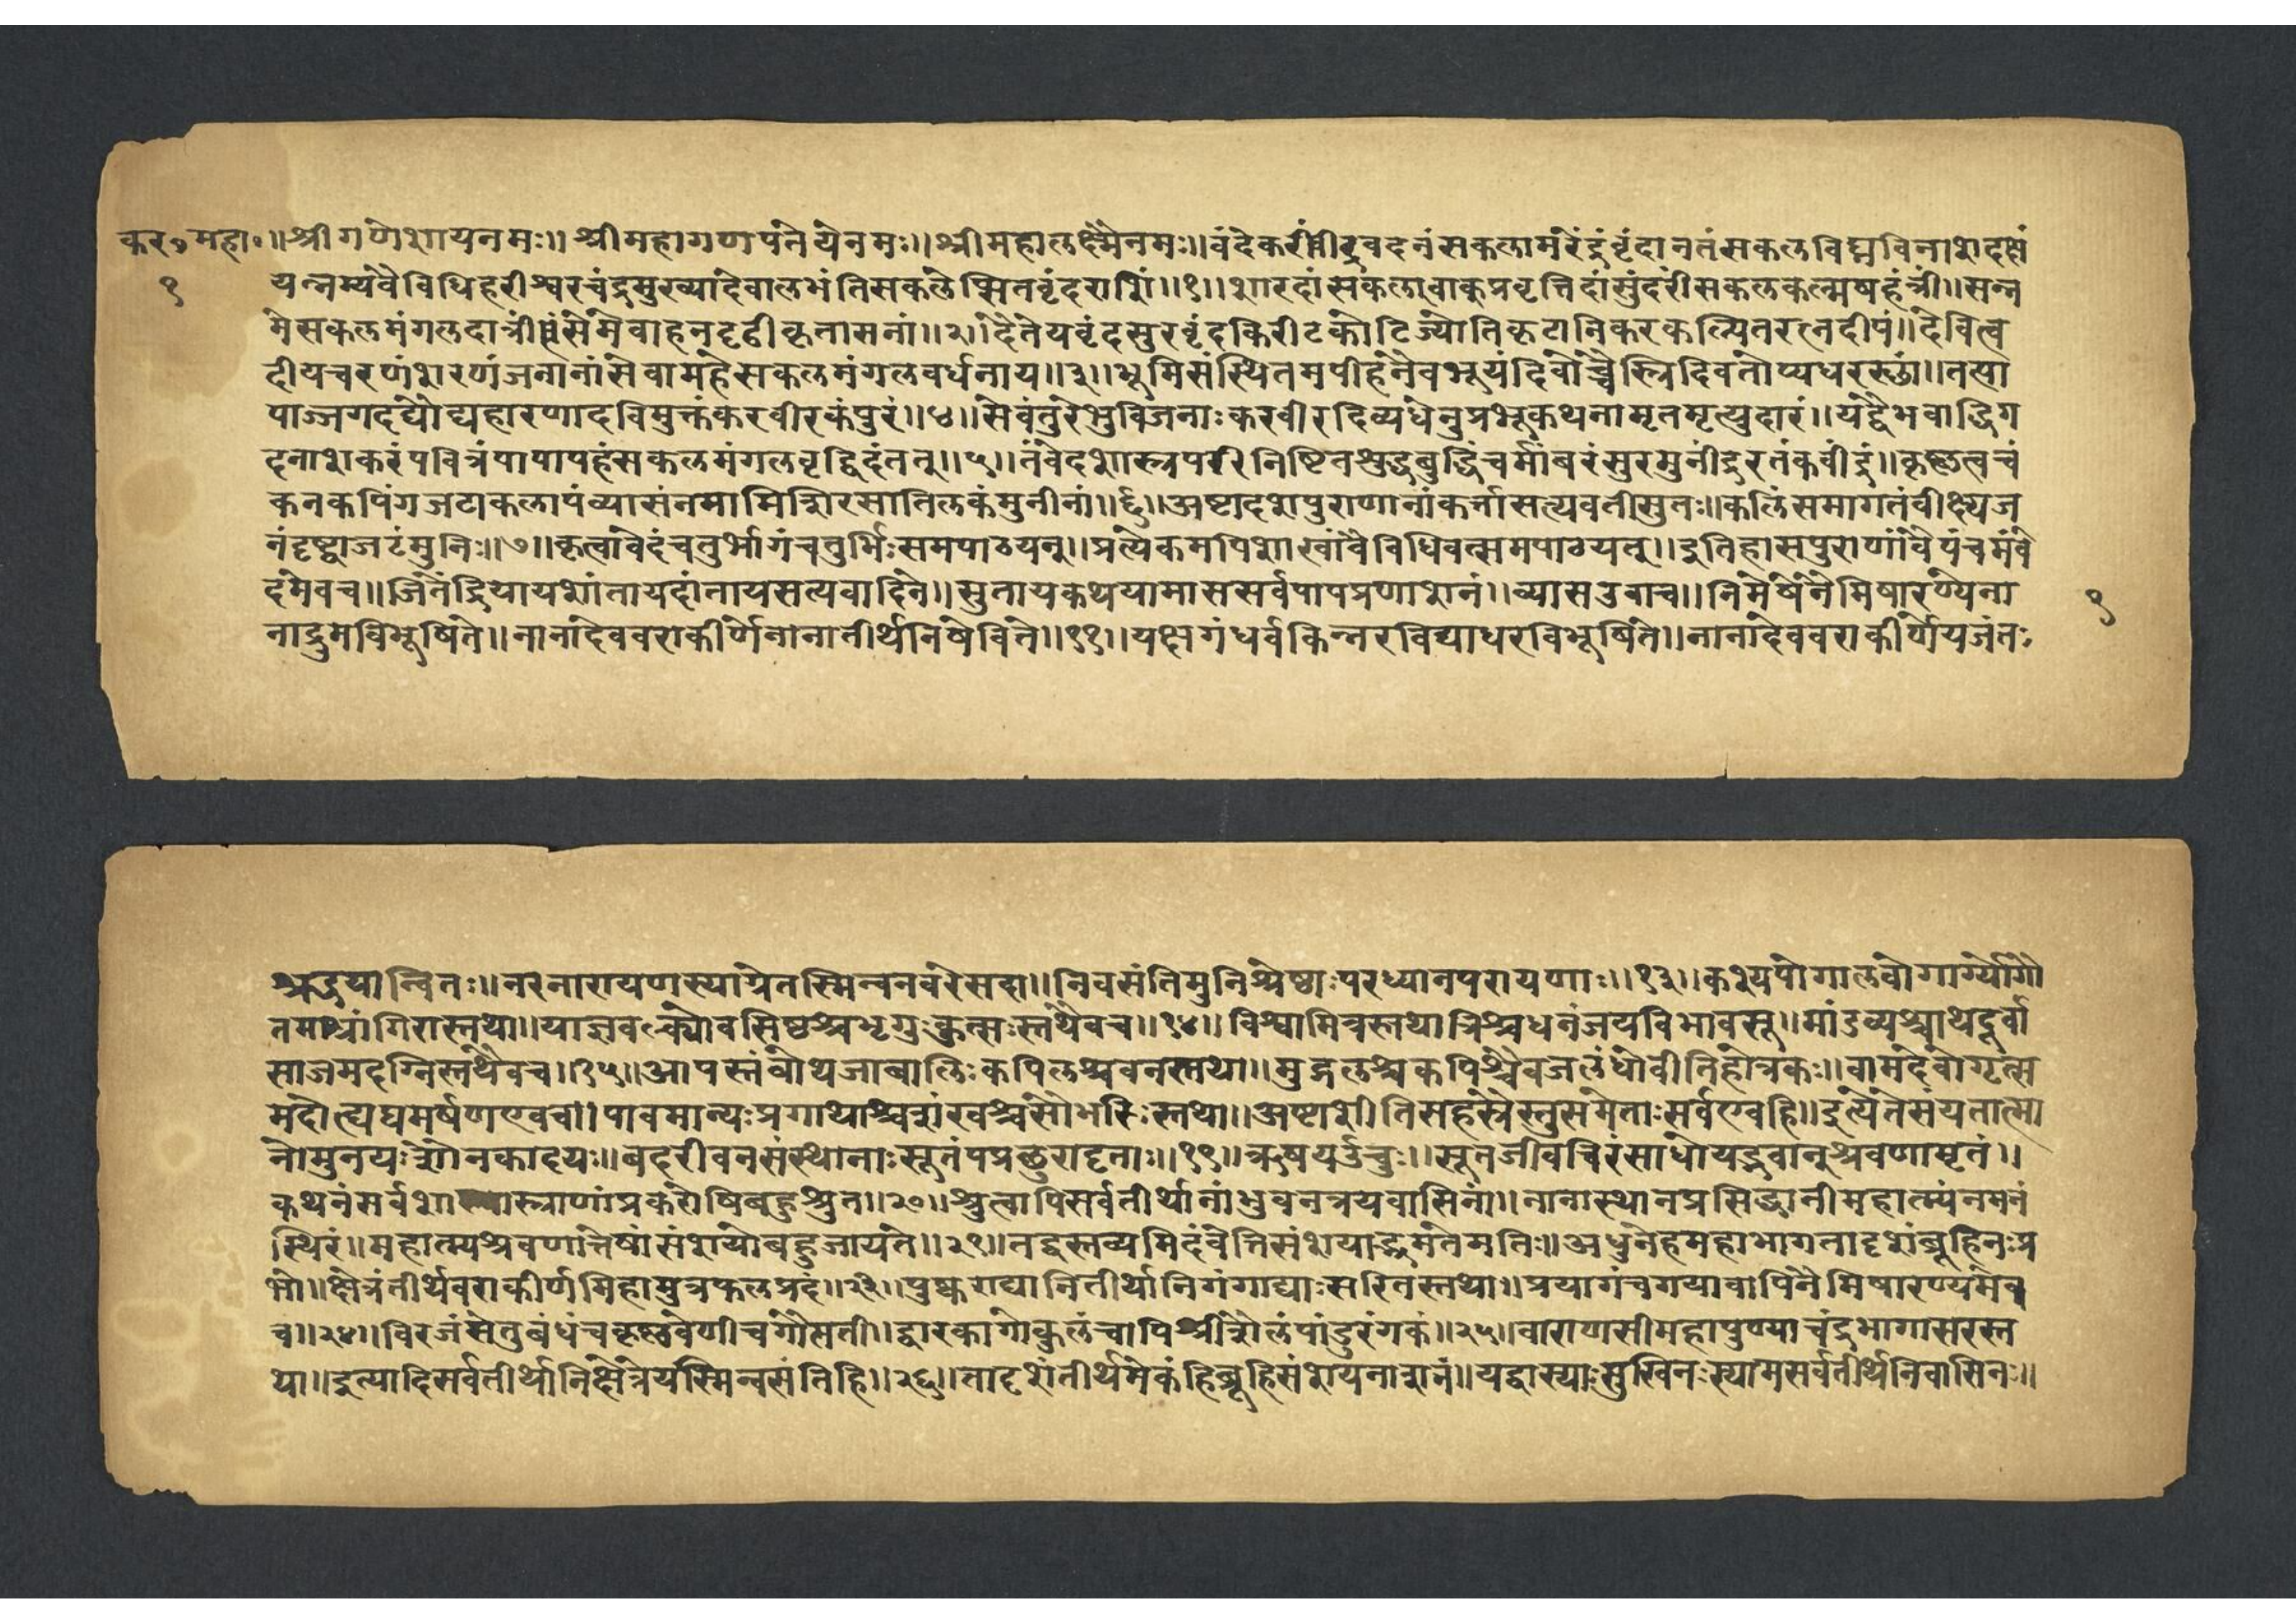 कर॰महा॰॥श्रीगणेशायनमः॥श्रीमहागणपतयेनमः॥श्रीमहालक्ष्म्यैनमः॥वंदेकरींद्रवदनंसकलामरेंद्रवृंदानतंसकलविघ्नविनाशदक्षं
१
यन्नम्यवैविधिहरीश्वरचंद्रमुख्यादेवालभंतिसकलेप्सितवृंदराशिं॥१॥शारदांसकलावाक्प्रवृत्तिदांसुंदरींसकलकल्मषहंत्रीं॥सन्न
मेसकलमंगलदात्रींहंसमेवाहनदृढीकृतासनां॥२॥दैतेयवृंदसुरवृंदकिरीटकोटिज्योतिकृटानिकरकल्पितरत्नदीपं॥देवित्व
दीयचरणंशरणंजनानांसेवामहेसकलमंगलवर्धनाय॥३॥भूमिसंस्थितमपीहनैवभूयंदिवोच्चैस्त्रिदिवतोप्यधरस्छां॥तत्पा
पाज्जगदघौघहारणादविमुक्तंकरवीरकंपुरं॥४॥सेवंतुरेभुविजनाःकरवीरदिव्यधेनुप्रभूकथनामृतमृत्युदारं॥यद्वैभवाद्धिग
दनाशकरंपवित्रंपापापहंसकलमंगलवृद्धिदंतत्॥५॥तंवेदशास्त्रपरिनिष्टितशुद्धबुद्धिंचर्मांबरंसुरमुनींद्रुरतंकवींद्रं॥कृष्णत्वचं
कनकपिंगजटाकलापंव्यासंनमामिशिरसातिलकंमुनीनां॥६॥अष्टादशपुराणानांकर्त्तासत्यवतीसुतः॥कलिंसमागतंवीक्ष्यज
नंदृष्ट्वाजटंमुनिः॥७॥कृत्वावेदंचतुर्भागंचतुर्भिःसमपाठयत्॥प्रत्येकमपिशाखांवैविधिवत्समपाठयत्॥इतिहासपुराणांवैपंचमंवे
दमेवच॥जितेंद्रियायशांतायदांतायसत्यवादिने॥सुतायकथयामाससर्वपापप्रणाशनं॥व्यासउवाच॥निमेषेनैमिषारण्येना
१
नाद्रुमविभूषिते॥नानादेववराकीर्णेनानातीर्थनिषेविते॥११॥यक्षगंधर्वकिन्नरविद्याधरविभूषिते॥नानादेववराकीर्णेयजंतः
श्रद्धयान्वितः॥नरनारायणस्याग्रेतस्मिन्वनवरेसदा॥निवसंतिमुनिश्रेष्ठाःपरध्यानपरायणाः॥१३॥कश्यपोगालवोगार्ग्योगौ
तमाश्चांगिरास्तथा॥याज्ञवल्क्योवसिष्ठश्चभृगुःकुत्सःस्तथैवच॥१४॥विश्वामित्रस्तथात्रिश्चधनंजयविभावसू॥मांडव्यश्चाथदूर्वा
साजमदग्निस्तथैवच॥१५॥आपस्तंबोथजाबालिःकपिलश्चवनस्तथा॥मुद्गलश्चकपिश्चैवजलंधोवीतिहोत्रकः॥वामदेवोगृत्स
मदोत्यघमर्षणएवच॥पावमान्यःप्रगाथाश्चशंखश्चसौभरिःस्तथा॥अष्टाशीतिसहस्रैस्तुसमेताःसर्वएवहि॥इत्येतेसंयतात्मा
नोमुनयःशौनकादयः॥बदरीवनसंस्थानाःसूतंपप्रछुरादृताः॥१९॥ऋषयऊचुः॥सूतजीवचिरंसाधोयद्भवान्श्रवणामृतं॥
कथनंसर्वशास्त्राणांप्रकरोषिबहुश्रुत॥२०॥श्रुत्वापिसर्वतीर्थानांभुवनत्रयवासिनां॥नानास्थानप्रसिद्धानीमहात्म्यंनमनं
स्थिरं॥महात्म्यश्रवणात्तेषांसंशयोबहुजायते॥२१॥तद्वक्तव्यमिदंवेत्तिसंशयाद्भ्रमतेमतिः॥अधुनेहमहाभागतादृशंब्रूहिनःप्र
भो॥क्षेत्रंतीर्थवराकीर्णमिहामुत्रफलप्रदं॥२३॥पुष्कराद्यानितीर्थानिगंगाद्याःसरितस्तथा॥प्रयागंचगयावापिनैमिषारण्यमेव
च॥२४॥विरजंसेतुबंधंचकृष्णवेणीचगौतमी॥द्वारकागोकुलंचापिश्रीशैलंपांडुरंगकं॥२५॥वाराणसीमहापुण्याचंद्रभागासरस्त
था॥इत्यादिसर्वतीर्थानिक्षेत्रेयस्मिन्वसंतिहि॥२६॥तादृशंतीर्थमेकंहिब्रूहिसंशयनाशनं॥यद्वास्याःसुखिनःस्यामसर्वतीर्थनिवासिनः॥